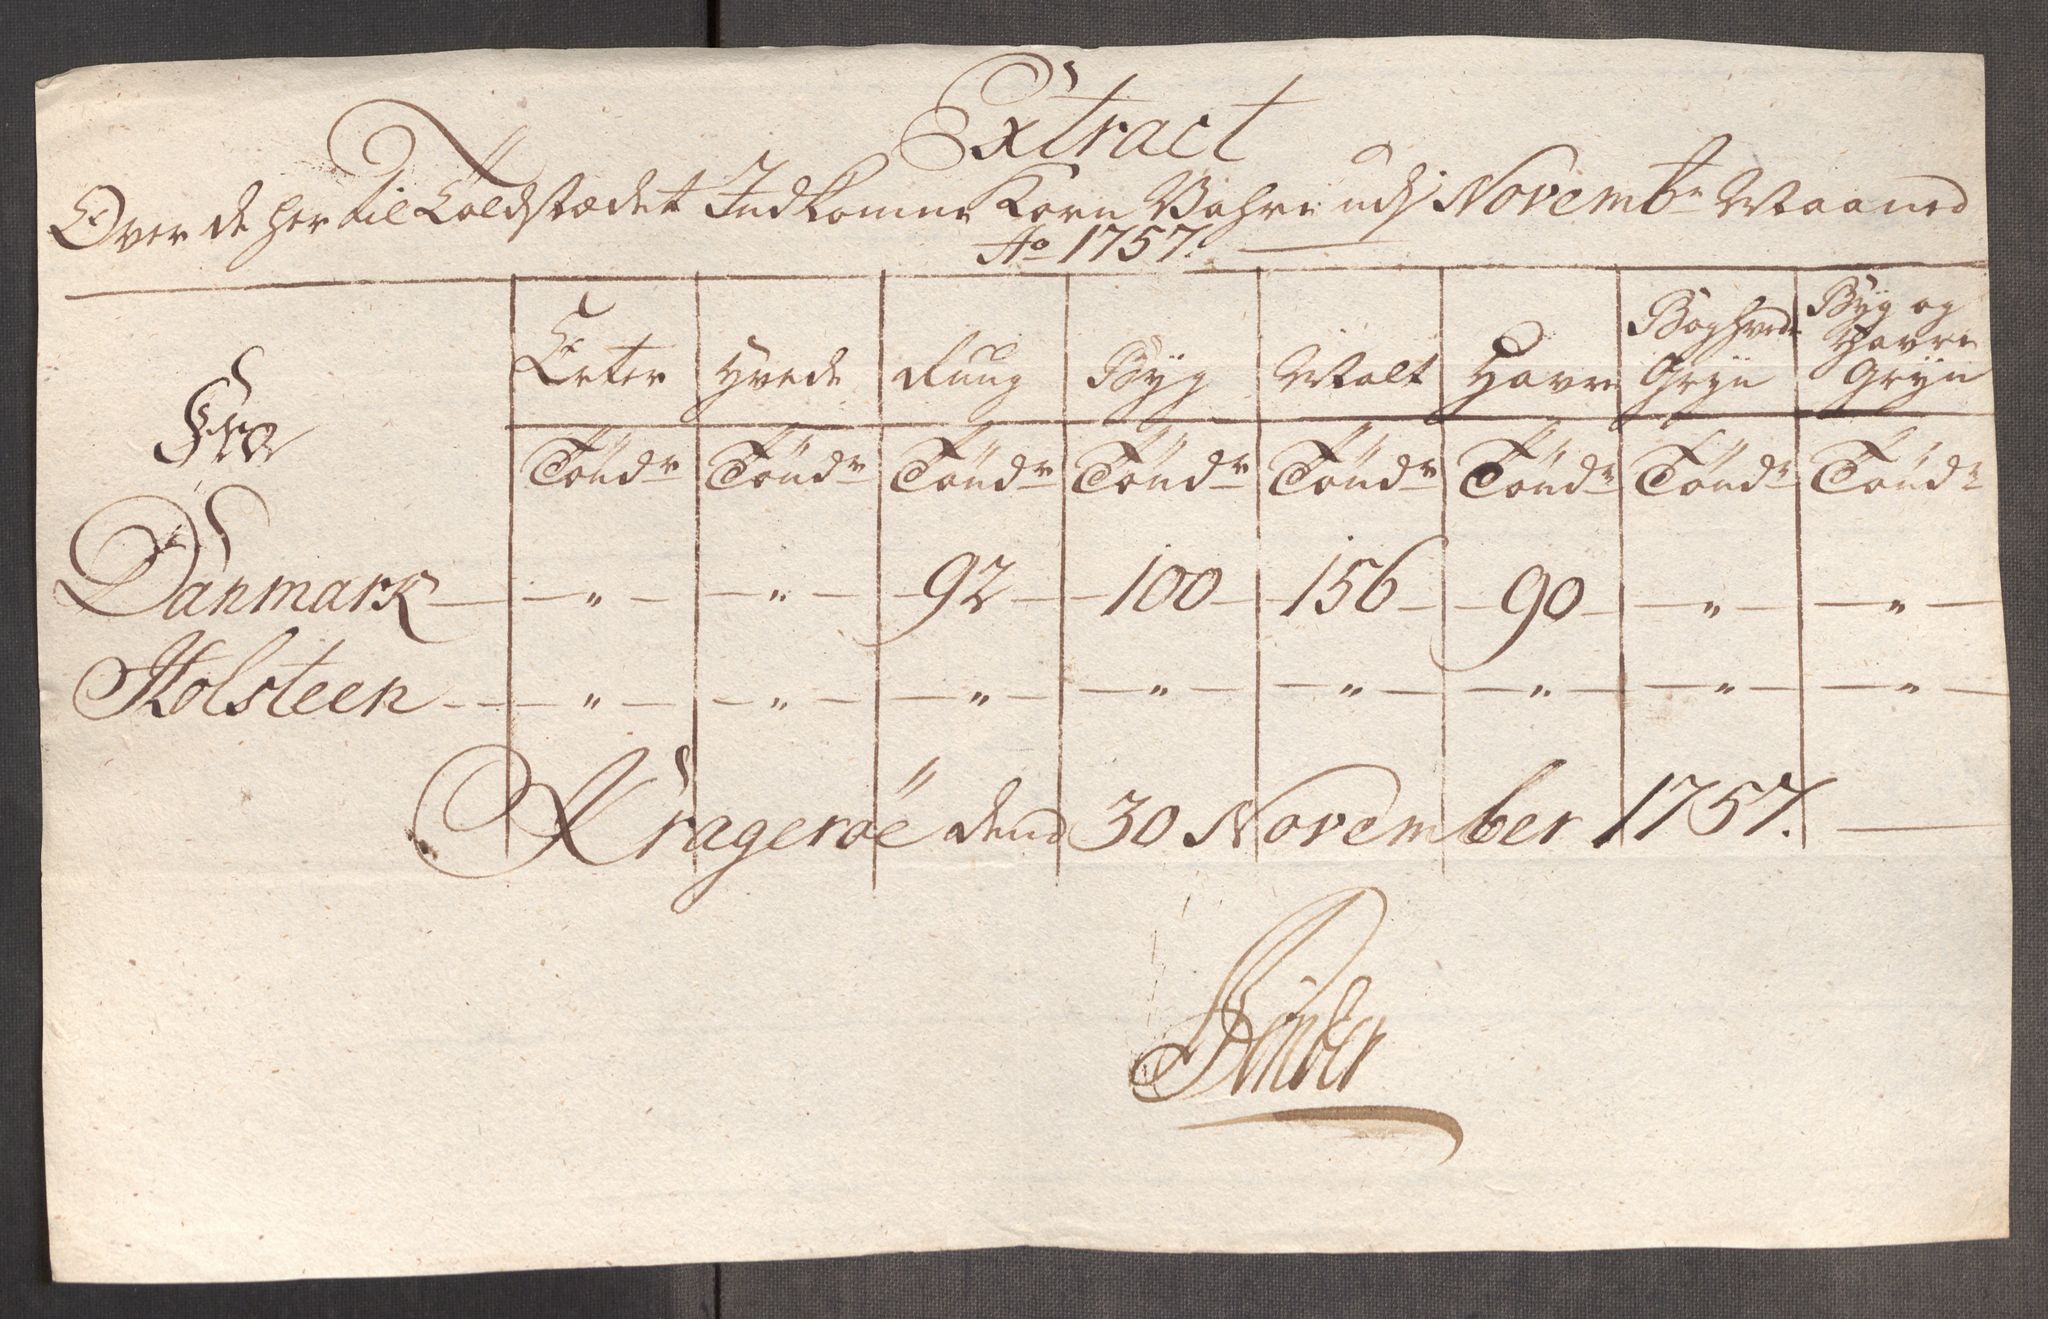 Extract
Over de her til Toldstædet Indkomne Korn Vahre udj Novembr Maaned
Ao 1757.
Fra
Erter Hvede Rug Byg Malt Havre Boghvede Gryn Byg og Havre Gryn
Töndr Töndr Töndr Töndr Töndr Töndr Töndr Töndr
Danmark — " — — " — 92 — 100 — 156 — 90 — " — — " —
Holsteen — " — — " — — " — — " — — " — — " — — " — — " —
Krageröe dend 30 November 1757.